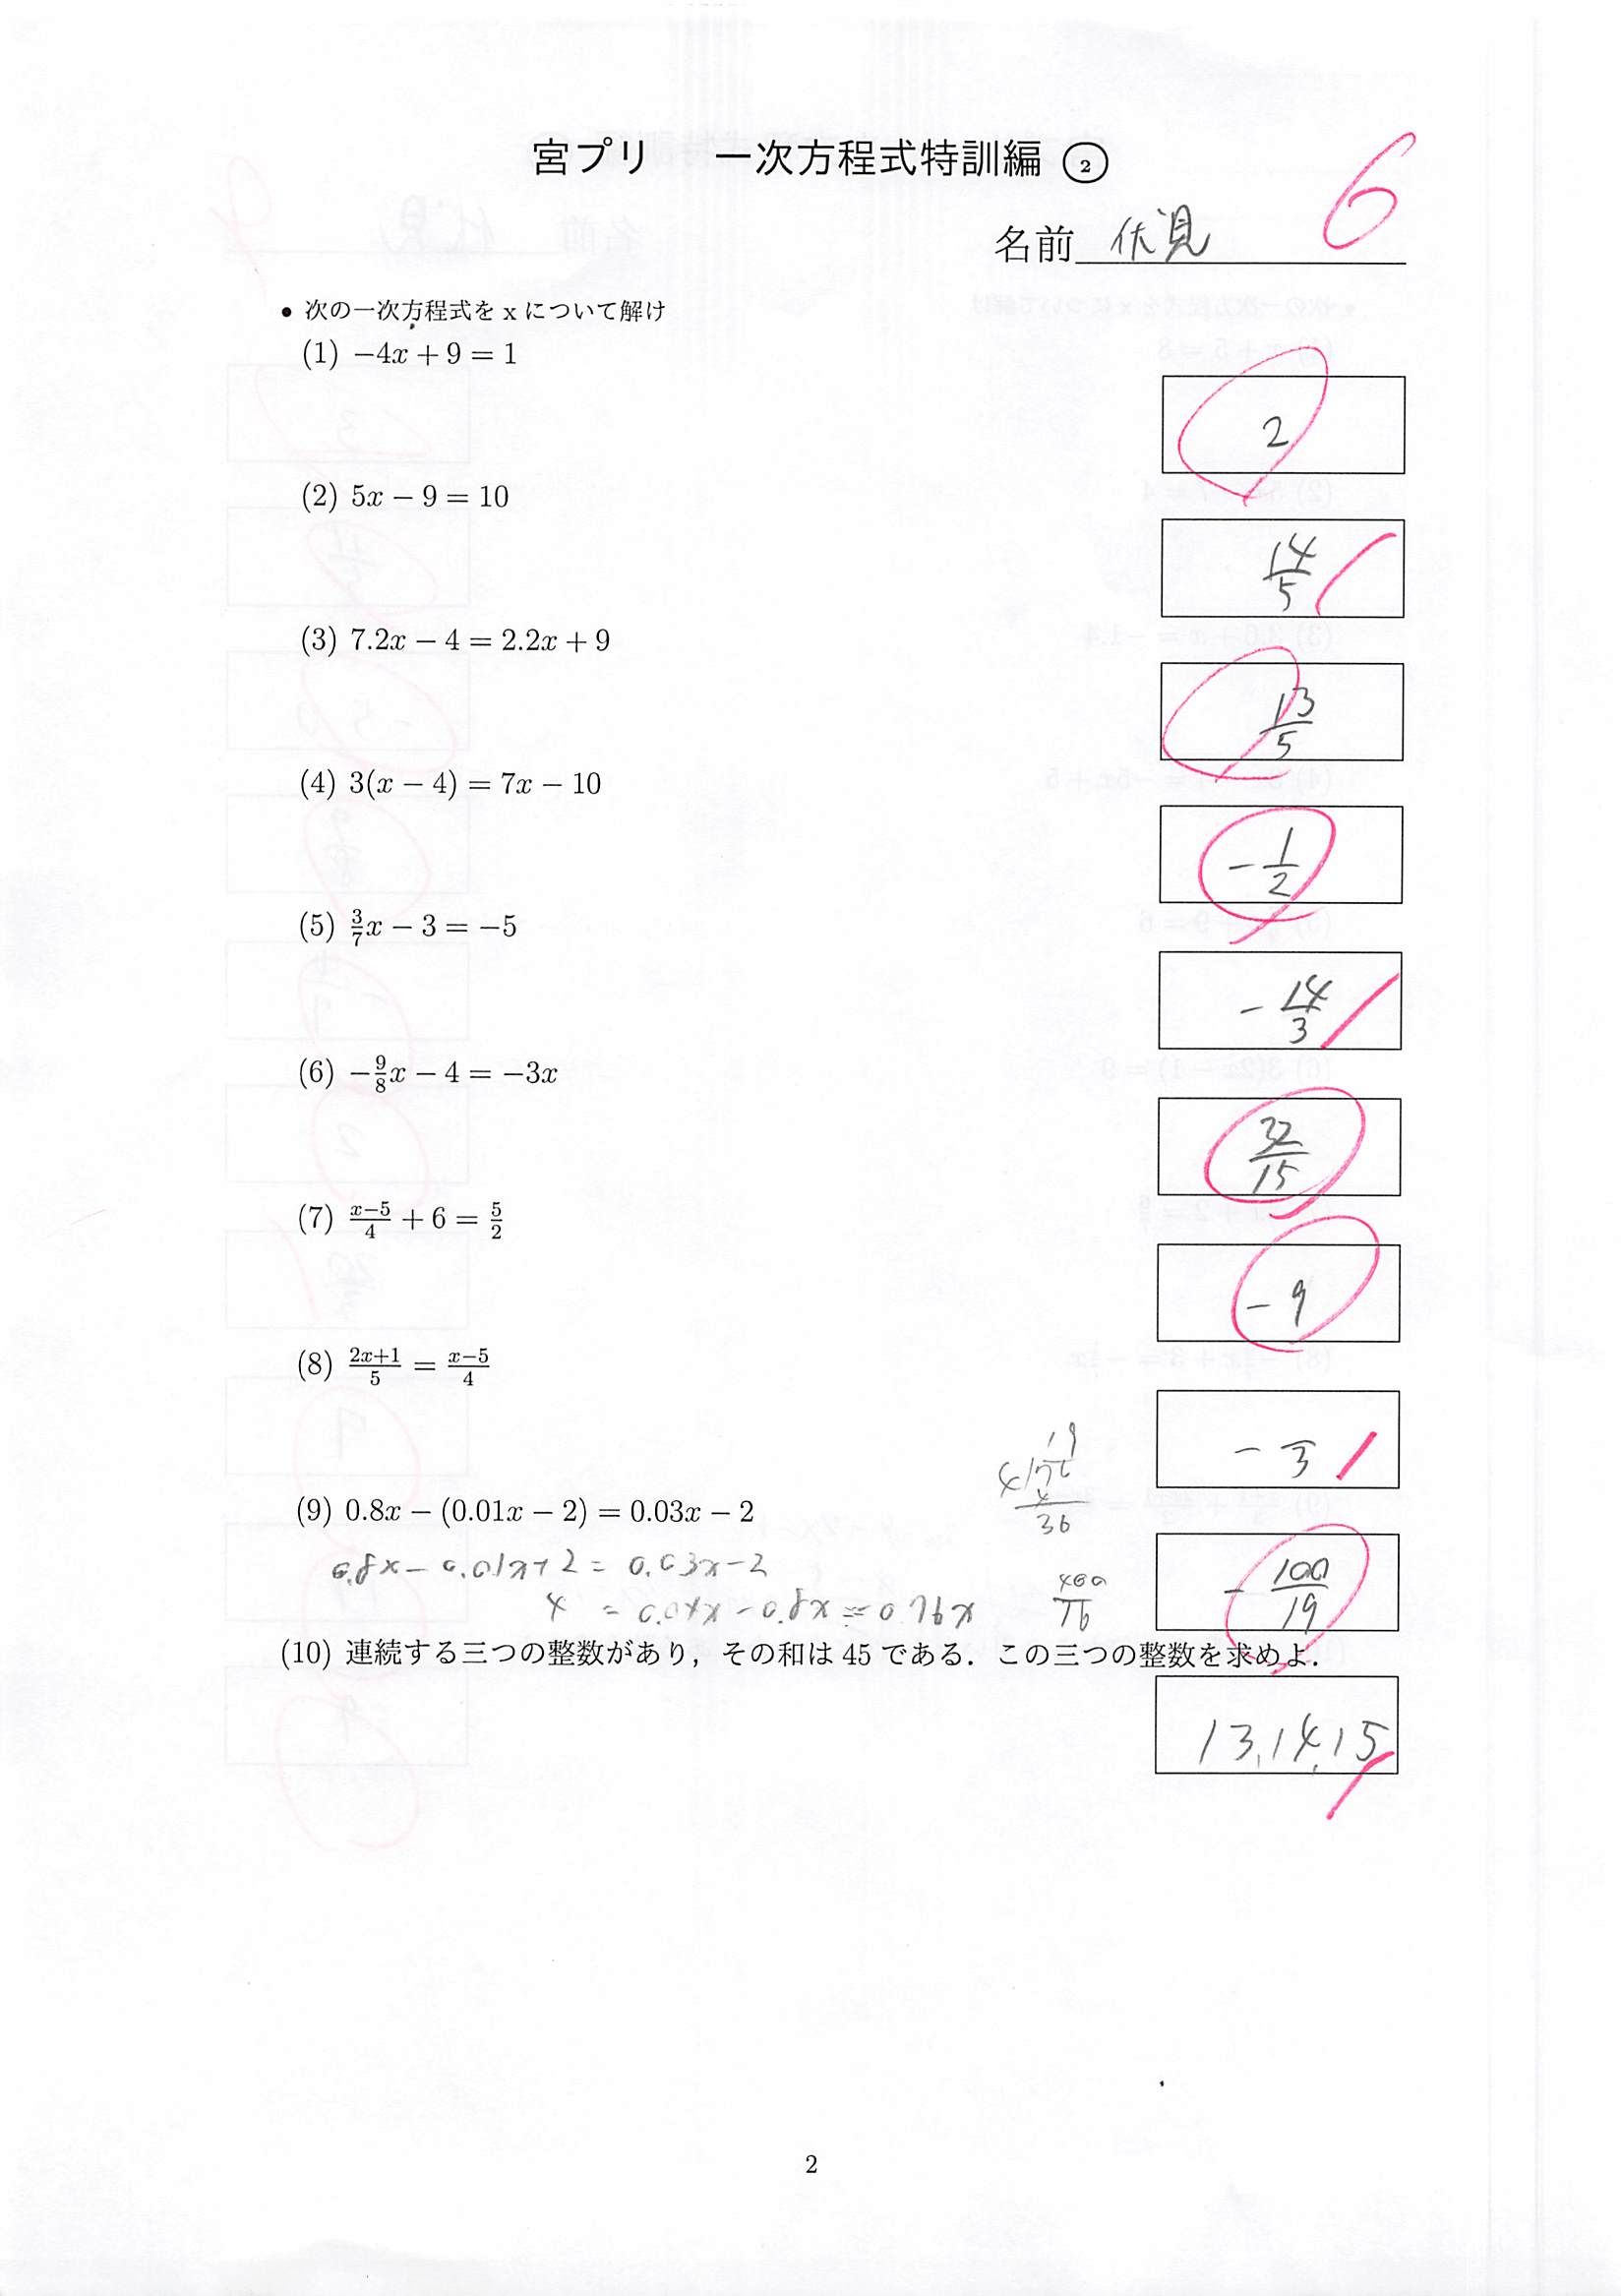 宮プリ 一次方程式特訓編 ②
6
名前 伏見
• 次の一次方程式を x について解け
(1) −4x + 9 = 1
2
(2) 5x − 9 = 10
14/5
(3) 7.2x − 4 = 2.2x + 9
13/5
(4) 3(x − 4) = 7x − 10
− 1/2
(5) 3/7 x − 3 = −5
− 14/3
(6) − 9/8 x − 4 = −3x
32/15
(7) (x−5)/4 + 6 = 5/2
− 9
(8) (2x+1)/5 = (x−5)/4
19
4
4
36
(9) 0.8x − (0.01x − 2) = 0.03x − 2
0.8x − 0.01x + 2 = 0.03x − 2
4 = 0.04x − 0.8x = 0.76x
400/76
− 100/19
(10) 連続する三つの整数があり，その和は 45 である．この三つの整数を求めよ．
13, 14, 15
2